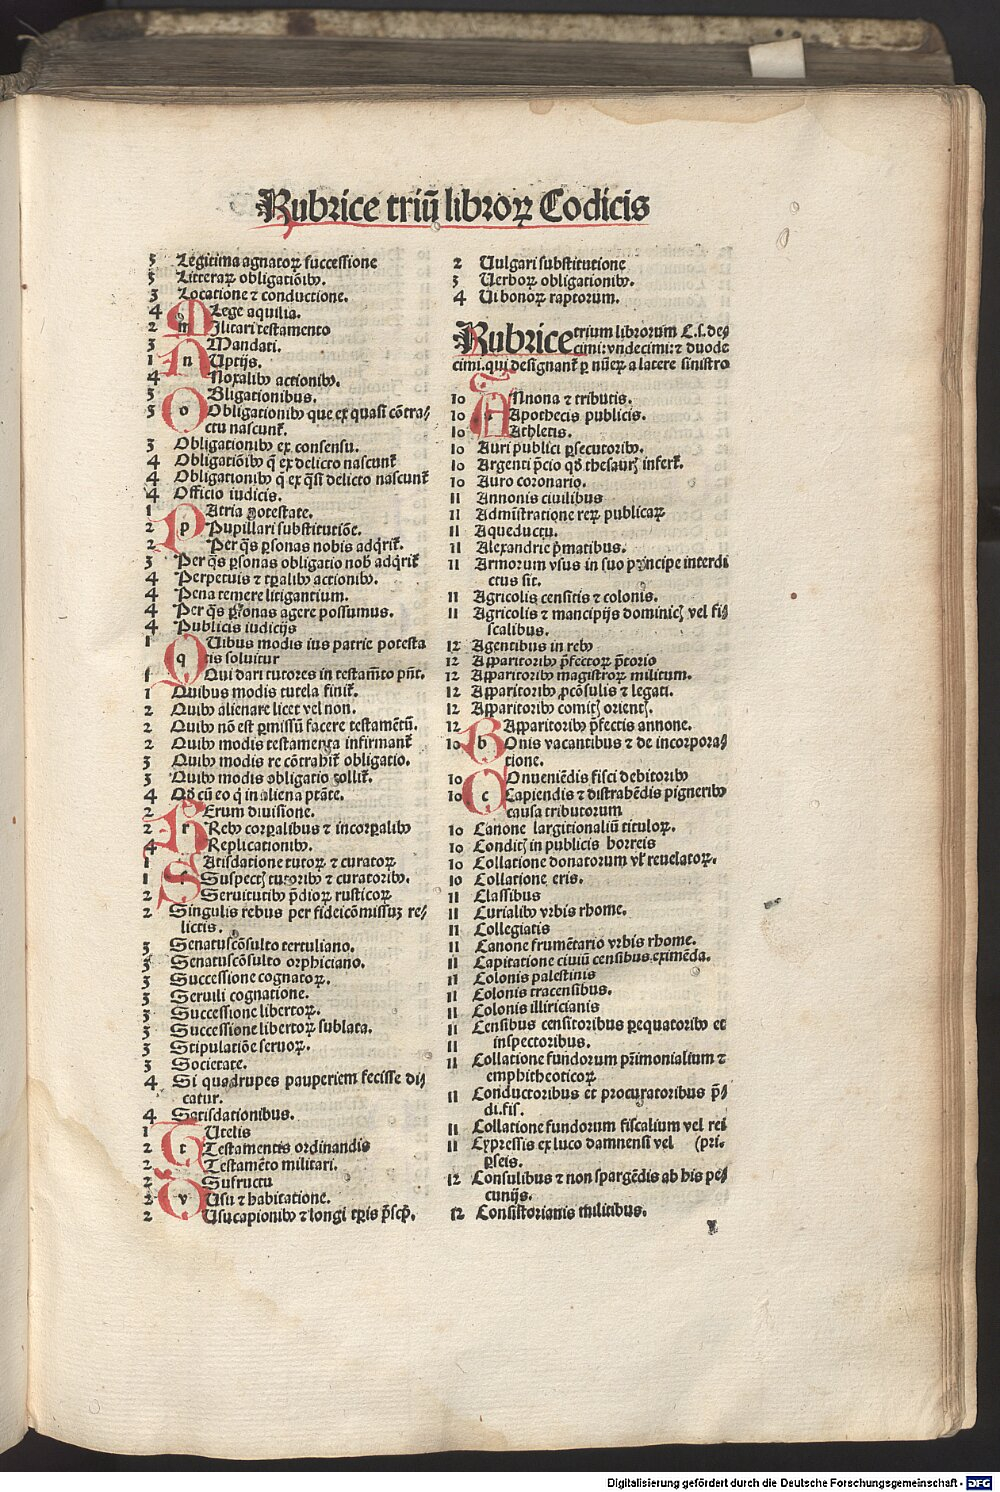 Rubrice triū libroꝝ Codicis
5 Legitima agnatoꝝ successione
5 Litteraꝝ obligatiōibꝰ.
3 Locatione ⁊ conductione.
4 Lege aquilia.
2 m Ilitari testamento
3 Mandati.
1 n Uptijs.
4 Noxalibꝰ actionibꝰ.
3 Bligationibus.
3 o Obligationibꝰ que ex quasi cōtra⸗
ctu nascunt᷑.
3 Obligationibꝰ ex consensu.
4 Obligatiōibꝰ q̄ ex delicto nascunt᷑
4 Obligationibꝰ q̄ ex q̄si delicto nascunt᷑
4 Officio iudicis.
1 Atria potestate.
2 p Pupillari substitutiōe.
2 Per q̄s ꝑsonas nobis adq̄rit᷑.
3 Per q̄s ꝑsonas obligatio nob̄ adq̄rit᷑
4 Perpetuis ⁊ tꝑalibꝰ actionibꝰ.
4 Pena temere litigantium.
4 Per q̄s ꝑsonas agere possumus.
4 Publicis iudicijs
1 Uibus modis ius patrie potesta
q tis soluitur
1 Qui dari tutores in testam̄to pn̄t.
1 Quibus modis tutela finit᷑.
2 Quibꝰ alienare licet vel non.
2 Quibꝰ nō est ꝑmissū facere testamētū.
2 Quibꝰ modis testamenta infirmant᷑
3 Quibꝰ modis re cōtrahit᷑ obligatio.
3 Quibꝰ modis obligatio tollit᷑.
4 Qd̄ cū eo q̄ in aliena ptāte.
2 Erum diuisione.
2 r Rebꝰ corꝑalibus ⁊ incorꝑalibꝰ
4 Replicationibꝰ.
1 Atisdatione tutoꝝ ⁊ curatoꝝ
1 s Suspect᷑ tutoribꝰ ⁊ curatoribꝰ.
2 Seruitutibꝰ p̄dioꝝ rusticoꝝ
2 Singulis rebus per fideicōmissuꝫ re⸗
lictis.
3 Senatuscōsulto tertuliano.
3 Senatuscōsulto orphiciano.
3 Successione cognatoꝝ.
3 Seruili cognatione.
3 Successione libertoꝝ.
3 Successione libertoꝝ sublata.
3 Stipulatiōe seruoꝝ.
3 Societate.
4 Si quadrupes pauperiem fecisse di⸗
catur.
4 Satisdationibus.
1 Utelis
2 t Testamentis ordinandis
2 Testamēto militari.
2 Sufructu
2 v Usu ⁊ habitatione.
2 Usucapionibꝰ ⁊ longi tꝑis p̄scp̄.
2 Uulgari substitutione
3 Uerboꝝ obligationibꝰ.
4 Ui bonoꝝ raptorum.
Rubrice trium librorum C.s. de⸗
cimi: vndecimi: ⁊ duode
cimi. qui designant᷑ ꝑ nūeꝝ a latere sinistro
10 Nnona ⁊ tributis.
10 a Apothecis publicis.
10 Athletis.
10 Auri publici ꝑsecutoribꝰ.
10 Argenti p̄cio qd̄ thesaur᷑ infert᷑.
10 Auro coronario.
11 Annonis ciuilibus
11 Admīstratione reꝝ publicaꝝ
11 Aqueductu.
11 Alexandrie p̄matibus.
11 Armorum vsus in suo principe interdi
ctus sit.
11 Agricolis censitis ⁊ colonis.
11 Agricolis ⁊ mancipijs dominic᷑ vel fi⸗
scalibus.
12 Agentibus in rebꝰ
12 Apparitoribꝰ p̄fectoꝝ p̄torio
12 Apparitoribꝰ magistroꝝ militum.
12 Apparitoribꝰ ꝓcōsulis ⁊ legati.
12 Apparitoribꝰ comit᷑ orient᷑.
12 Apparitoribꝰ p̄fectis annone.
10 b Onis vacantibus ⁊ de incorpora⸗
tione.
10 Onueniēdis fisci debitoribꝰ
10 c Capiendis ⁊ distrahēdis pigneribꝰ
causa tributorum
10 Canone largitionaliū tituloꝝ.
10 Condit᷑ in publicis horreis
10 Collatione donatorum vl᷑ reuelatoꝝ.
10 Collatione eris.
11 Classibus
11 Curialibꝰ vrbis rhome.
11 Collegiatis
11 Canone frumētario vrbis rhome.
11 Capitatione ciuiū censibus eximēda.
11 Colonis palestinis
11 Colonis tracensibus.
11 Colonis illiricianis
11 Censibus censitoribus ꝑequatoribꝰ et
11 inspectoribus.
11 Collatione fundorum pr̄imonialium ⁊
emphitheoticoꝝ
11 Conductoribus et procuratoribus p̄⸗
di.fis.
11 Collatione fundorum fiscalium vel rei
11 Cypressis ex luco damnensi vel (pri⸗
ꝑseis.
12 Consulibus ⁊ non spargēdis ab his pe⸗
cunijs.
12 Consistorianis militibus.
Digitalisierung gefördert durch die Deutsche Forschungsgemeinschaft - DFG